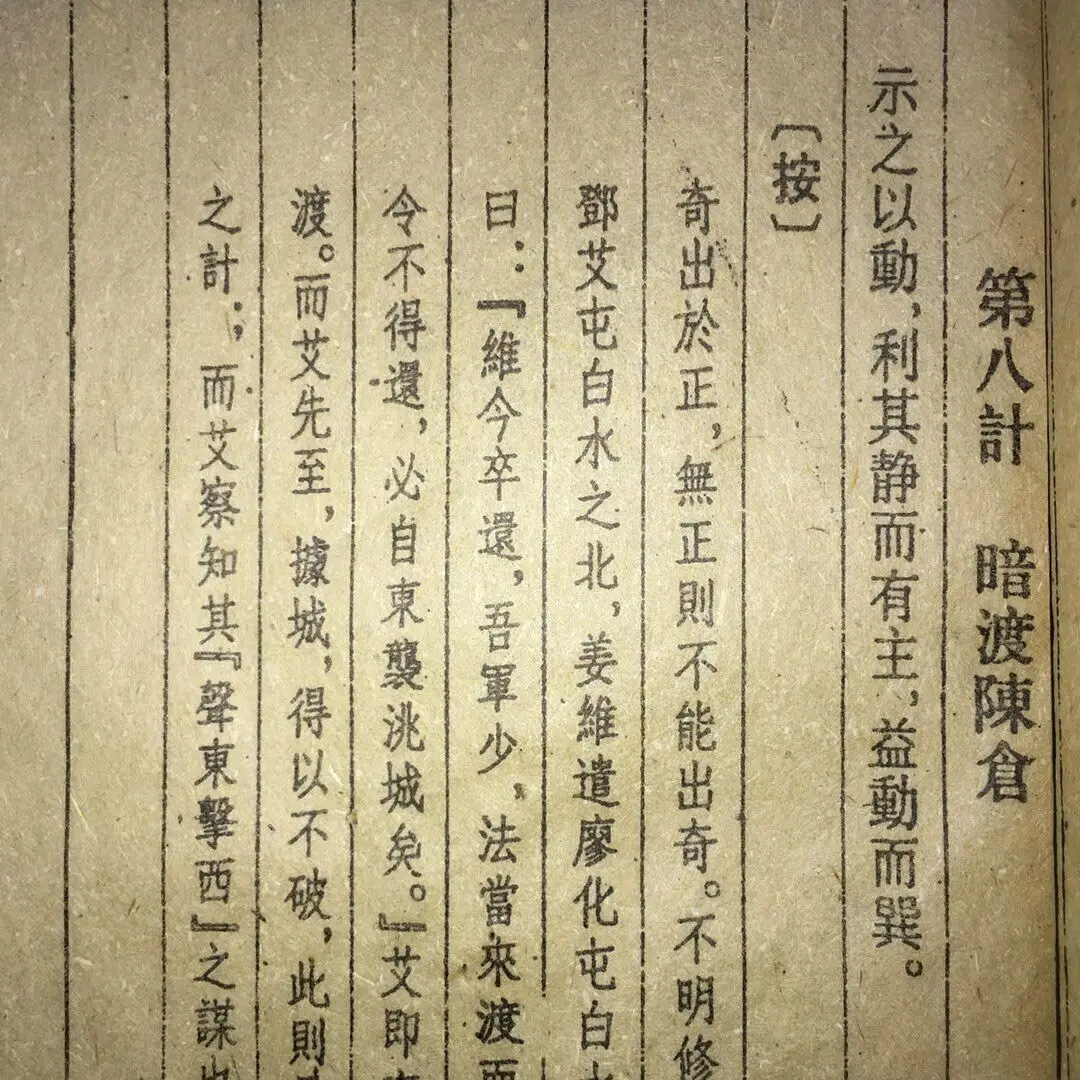 第八計　暗渡陳倉
示之以動，利其静而有主，益動而巽。
〔按〕
奇出於正，無正則不能出奇。不明修
鄧艾屯白水之北，姜維遣廖化屯白
曰：『維今卒還，吾軍少，法當來渡而
令不得還，必自東襲洮城矣。』艾即
渡。而艾先至，據城，得以不破，此則
之計；而艾察知其『聲東擊西』之謀